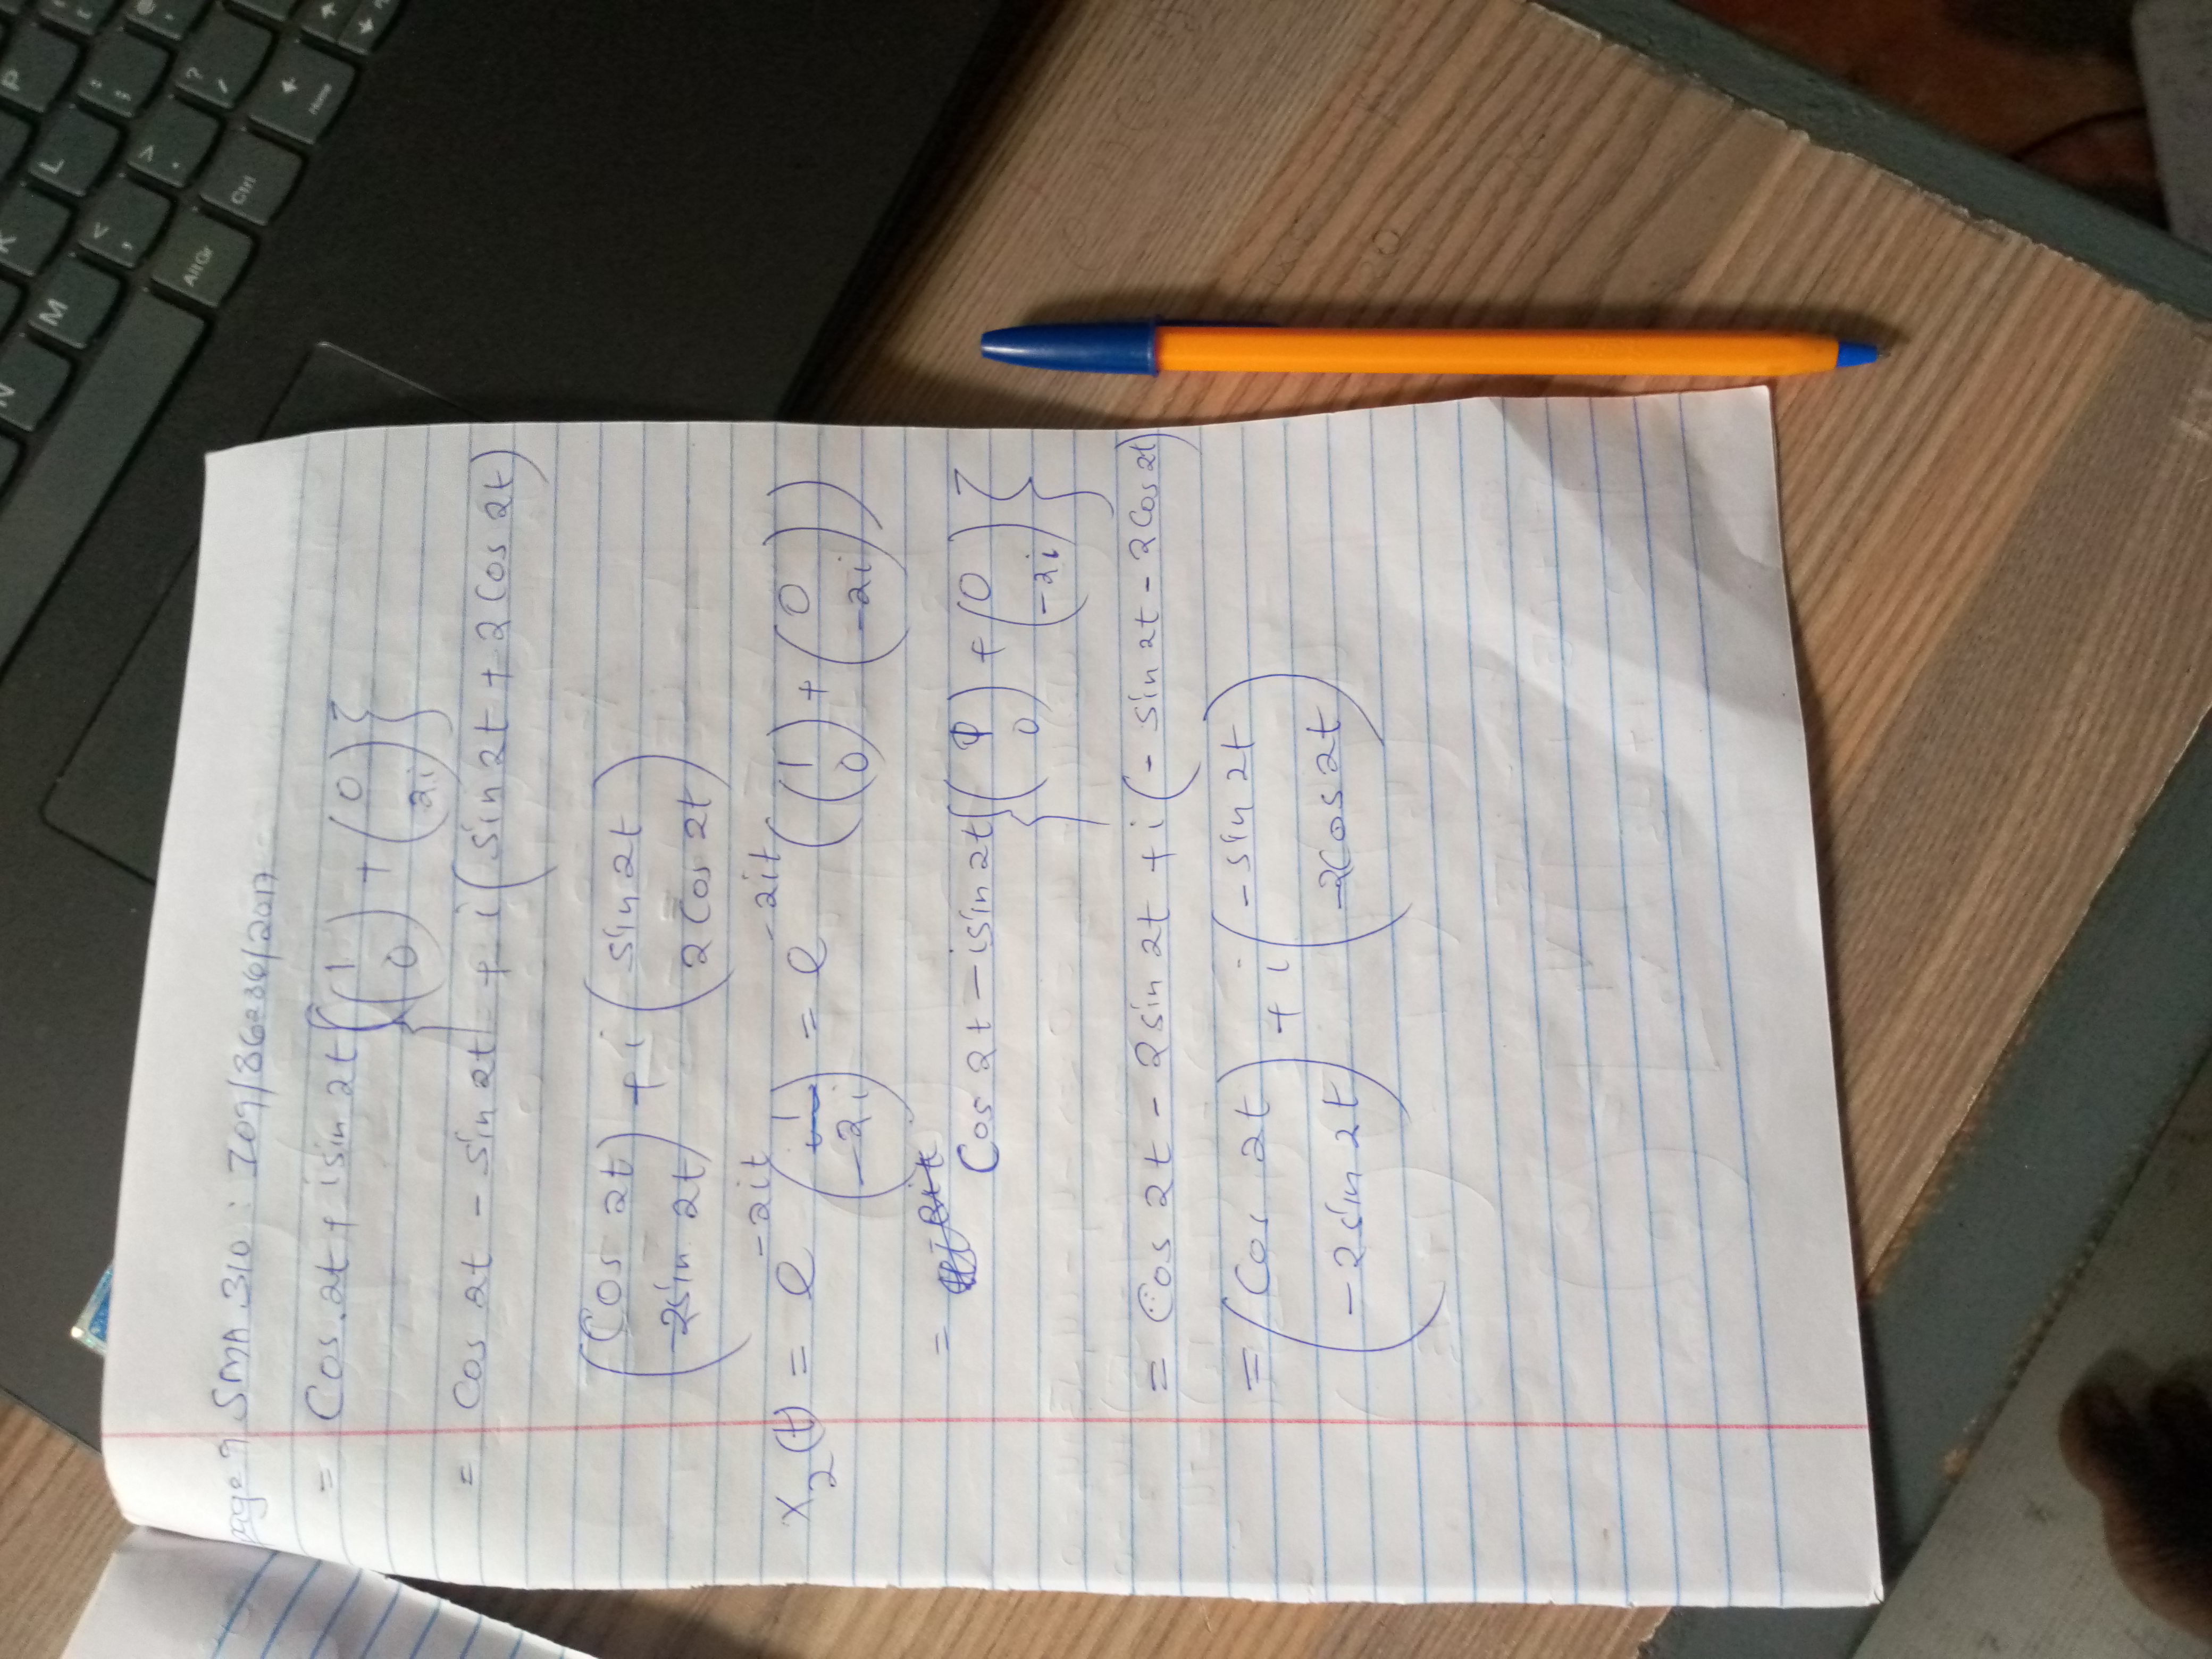 page 7 SMA 310: I07/86236/2017
= Cos 2t + isin 2t {(1 0) + (0 2i)}
= Cos 2t - sin 2t + i (sin 2t + 2 Cos 2t)
(Cos 2t -2sin 2t) + i (sin 2t 2 Cos 2t)
X₂(t) = e^-2it (1 -2i) = e^-2it ((1 0) + (0 -2i))
= Cos 2t - isin 2t {(1 0) + (0 -2i)}
= Cos 2t - 2sin 2t + i (- sin 2t - 2 Cos 2t)
= (Cos 2t - 2sin 2t) + i (- sin 2t -2Cos 2t)
P
L
K
M
N
? /
> .
< ,
Home
Ctrl
AltGr